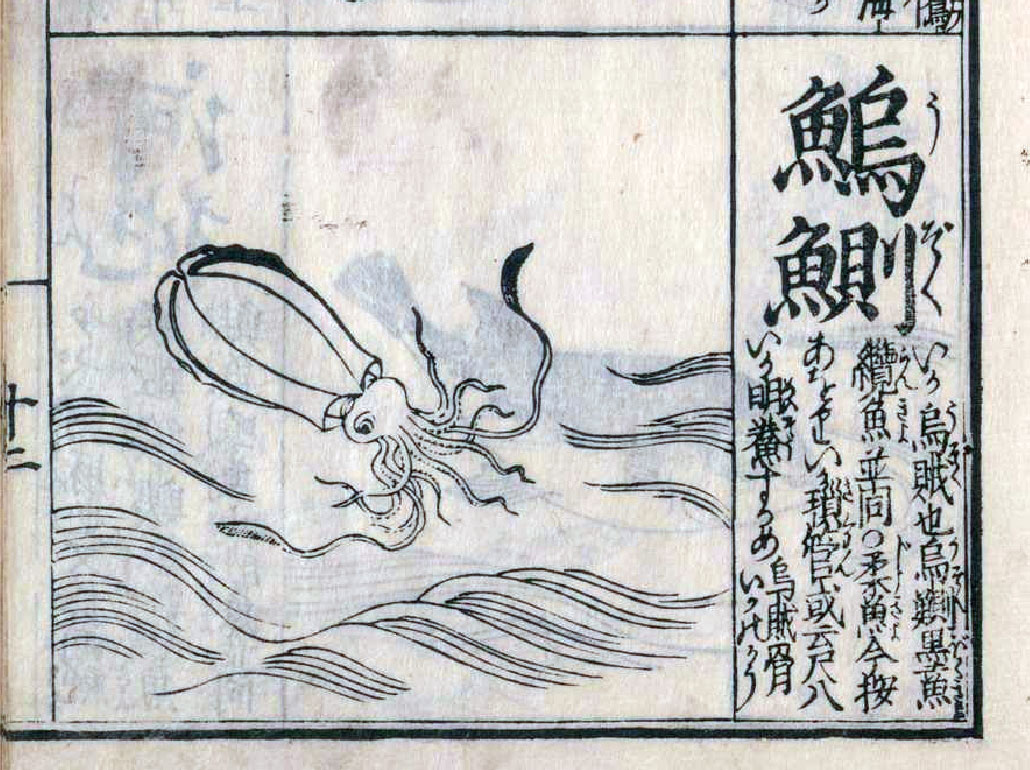 鰞鰂
うぞく
いか烏賊也烏鰂墨魚
纜魚並同○柔魚今按
いか瑣管或云尺八
いか明鯗するめ烏賊骨いかのかう
十二